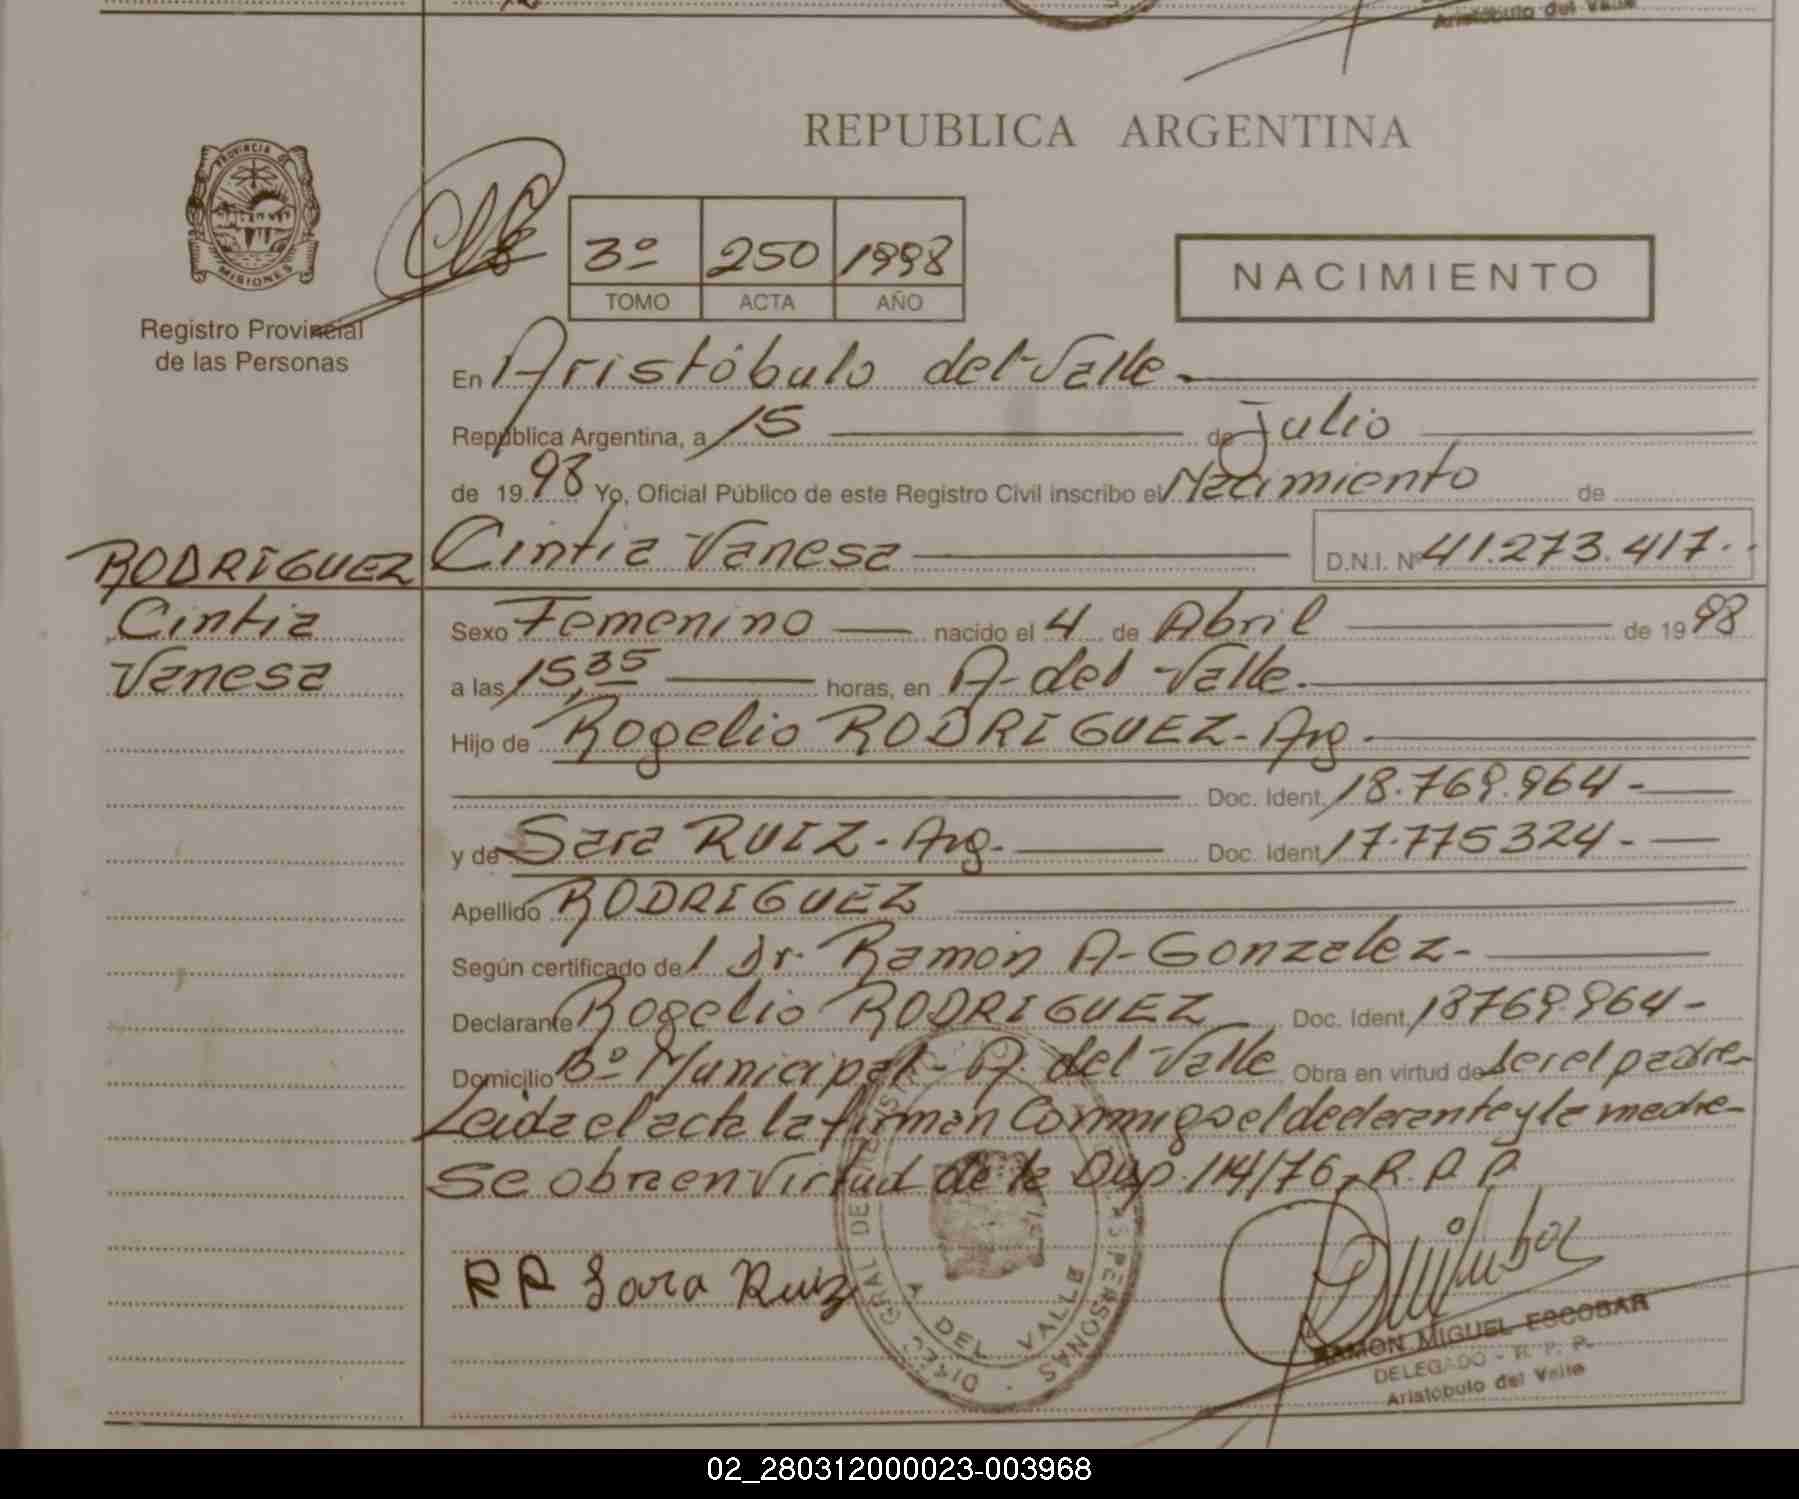 Aristóbulo del Valle
REPUBLICA ARGENTINA
PROVINCIA DE
MISIONES
Registro Provincial
de las Personas
3º 250 1998
TOMO ACTA AÑO
NACIMIENTO
En Aristóbulo del Valle.
República Argentina, a 15 de Julio
de 1998 Yo, Oficial Público de este Registro Civil inscribo el Nacimiento de
RODRIGUEZ Cintia Vanesa D.N.I. Nº 41.273.417.
Cintia Sexo Femenino nacido el 4 de Abril de 1998
Vanesa a las 15,35 horas, en A. del Valle.
Hijo de Rogelio RODRIGUEZ - Arg.
Doc. Ident. 18.769.964-
y de Sara RUIZ - Arg. Doc. Ident. 17.775324-
Apellido RODRIGUEZ
Según certificado del Dr. Ramón A. Gonzalez-
Declarante Rogelio RODRIGUEZ Doc. Ident. 18769.964-
Domicilio Bº Municipal - A. del Valle Obra en virtud de ser el padre-
Leida el acta la firman Conmigo el declarante y la madre-
se obra en virtud de la Disp. 114/76, R.P.P.
RR Sara Ruiz
DIREC. GRAL DEL REGISTRO DE LAS PERSONAS
A. DEL VALLE
RAMON MIGUEL ESCOBAR
DELEGADO - R. P. P.
Aristóbulo del Valle
02_280312000023-003968